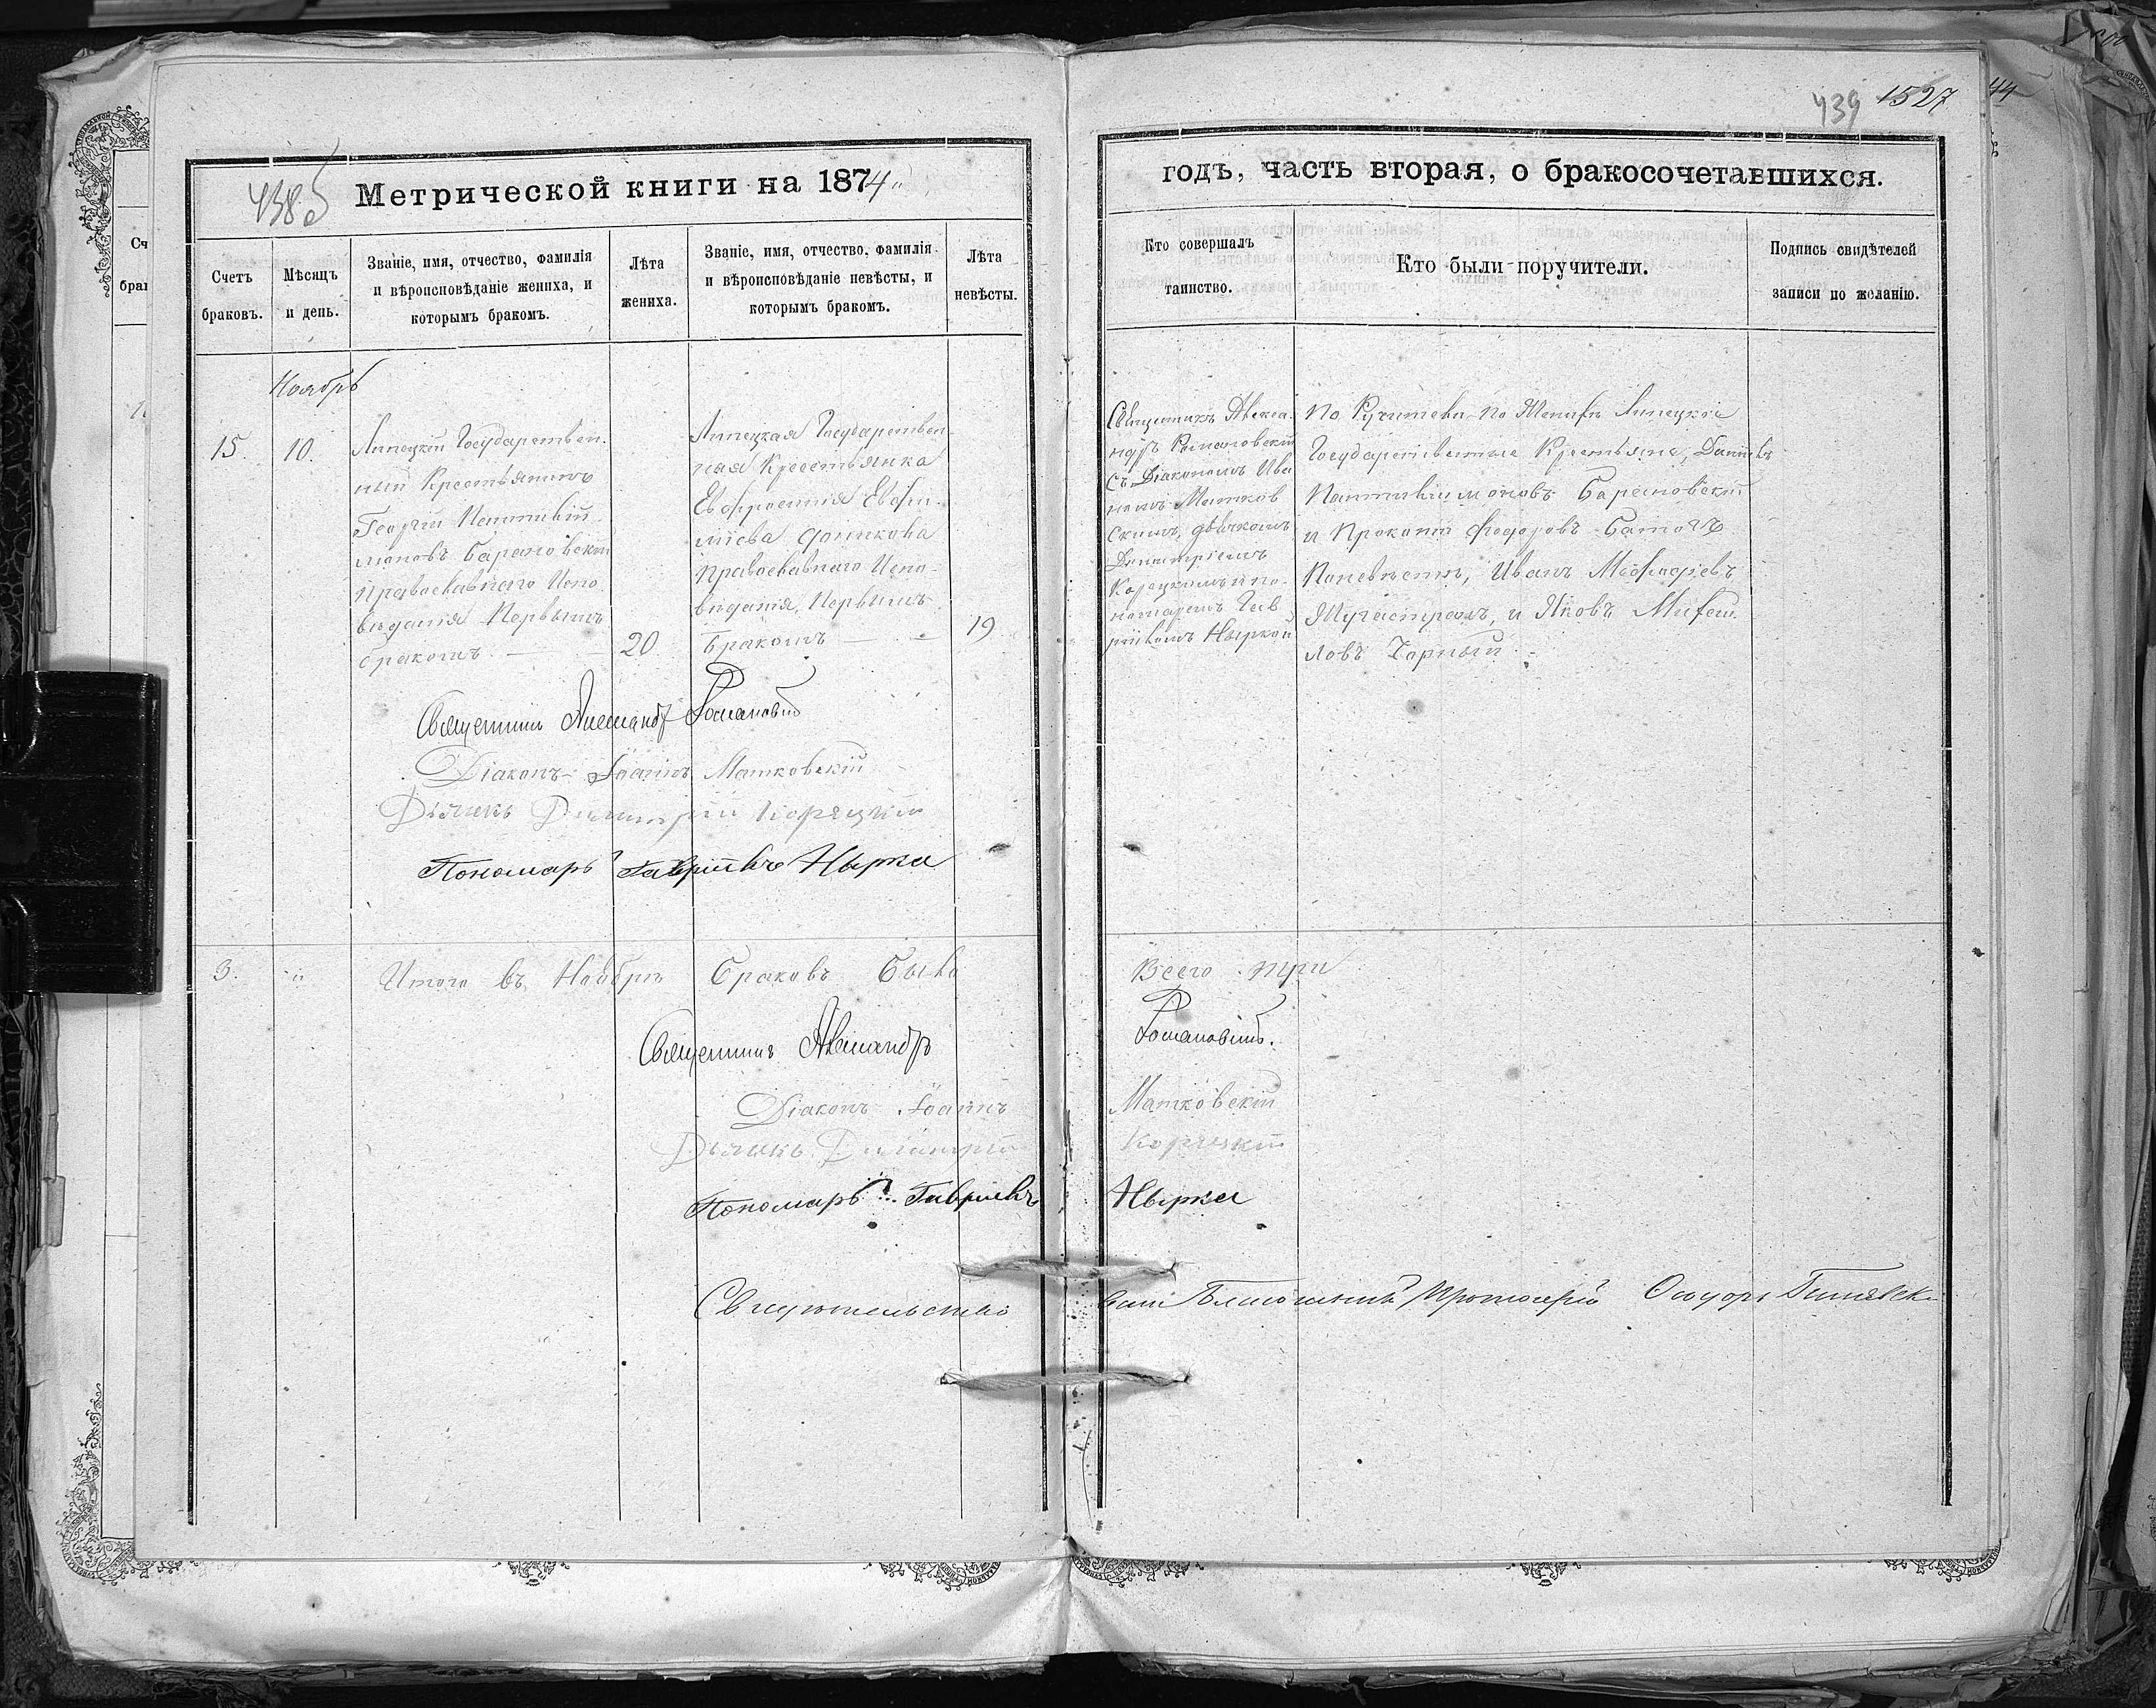 439 1527
438б
Метрической книги на 1874
годъ, часть вторая, о бракосочетавшихся.
Счетъ браковъ.
Мѣсяцъ и день.
Званіе, имя, отчество, фамилія
и вѣроисповѣданіе жениха, и
которымъ бракомъ.
Лѣта
жениха.
Званіе, имя, отчество, фамилія
и вѣроисповѣданіе невѣсты, и
которымъ бракомъ.
Лѣта
невѣсты.
Кто совершалъ
таинство.
Кто были поручители.
Подпись свидѣтелей
записи по желанію.
Ноябрь
15. 10.
Липецкій Государствен-
ный Крестьянинъ
Георгій
Барановскій
Православнаго Испо
вѣданія Первымъ
бракомъ
20
Липецкая Государствен-
ная Крестьянка
Евфросинія Евфи-
міева
Православнаго Испо-
вѣданія, Первымъ
бракомъ
19
Священникъ Алекса-
ндръ Романовскій
съ Діакономъ Ива
номъ Матков
скимъ, дьячкомъ
Димитріемъ
Корецкимъ и по-
номаремъ Гав
ріиломъ Ныркой
По Женихѣ Липецкіе
Государственные Крестьяне, Даніилъ
Барановскій
и Прокопій Федоровъ
По невѣстѣ, Иванъ
и Яковъ Михаи
ловъ Чорный
Священникъ Александръ Романовскій
Діаконъ Іоаннъ Матковскій
Дьячекъ Димитрій Корецкій
Пономарь Гавріилъ Нырка
3. Итого въ Ноябрѣ Браковъ Было Всего три
Священникъ Александръ Романовскій.
Діаконъ Іоаннъ Матковскій
Дьячекъ Димитрій Корецкій
Пономарь Гавріилъ Нырка
Свидѣтельство
валъ Протоіерей